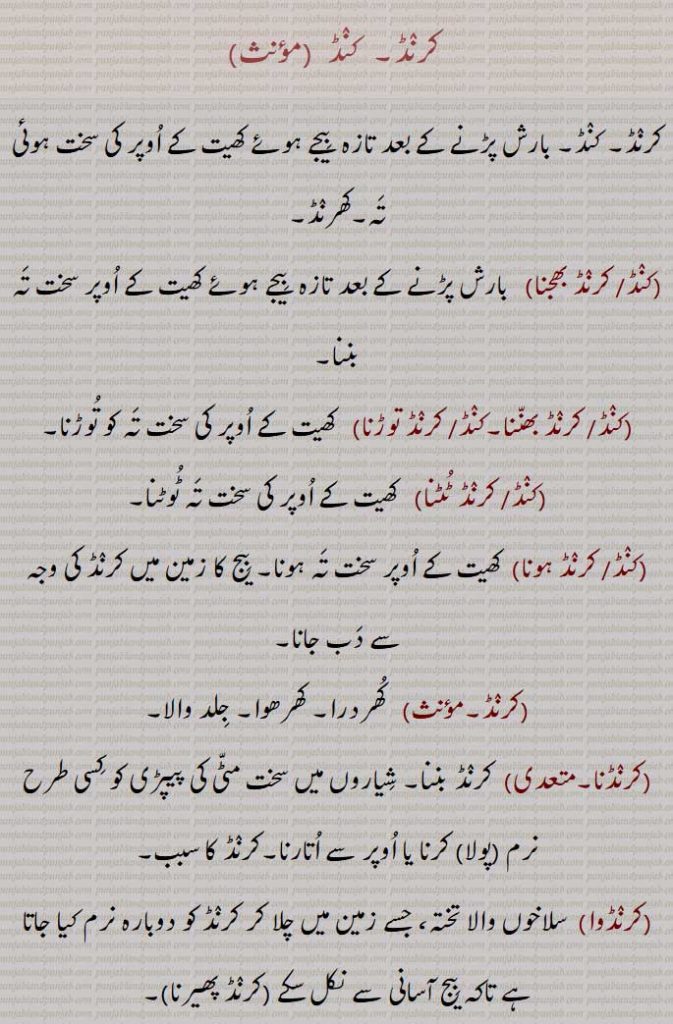 کرنٛڈ۔ کنٛڈ (مؤنث)
کرنٛڈ۔ کنٛڈ۔ بارش پڑنے کے بعد تازہ بیجے ہوئے کھیت کے اُوپر کی سخت ہوئی
تَہ۔کھرنٛڈ۔
(کنٛڈ/ کرنٛڈ بھجنا) بارش پڑنے کے بعد تازہ بیجے ہوئے کھیت کے اُوپر سخت تَہ
بننا۔
(کنٛڈ/ کرنٛڈ بھنّنا۔کنٛڈ/ کرنٛڈ توڑنا) کھیت کے اُوپر کی سخت تَہ کو تُوڑنا۔
(کنٛڈ/ کرنٛڈ ٹُٹنا) کھیت کے اُوپر کی سخت تَہ ٹُوٹنا۔
(کنٛڈ/ کرنٛڈ ہونا) کھیت کے اُوپر سخت تَہ ہونا۔ بیج کا زمین میں کرنٛڈ کی وجہ
سے دَب جانا۔
(کرنٛڈ۔مؤنث) کُھردرا۔ کھرھوا۔ جِلد والا۔
(کرنٛڈنا۔متعدی) کرنٛڈ بننا۔ شِیاروں میں سخت مٹّی کی پیپڑی کو کِسی طرح
نرم (پولا) کرنا یا اُوپر سے اُتارنا۔کرنٛڈ کا سبب۔
(کرنٛڈوا) سلاخوں والا تختہ، جسے زمین میں چلا کر کرنٛڈ کو دوبارہ نرم کیا جاتا
ہے تاکہ بیج آسانی سے نکل سکے (کرنٛڈ پھیرنا)۔